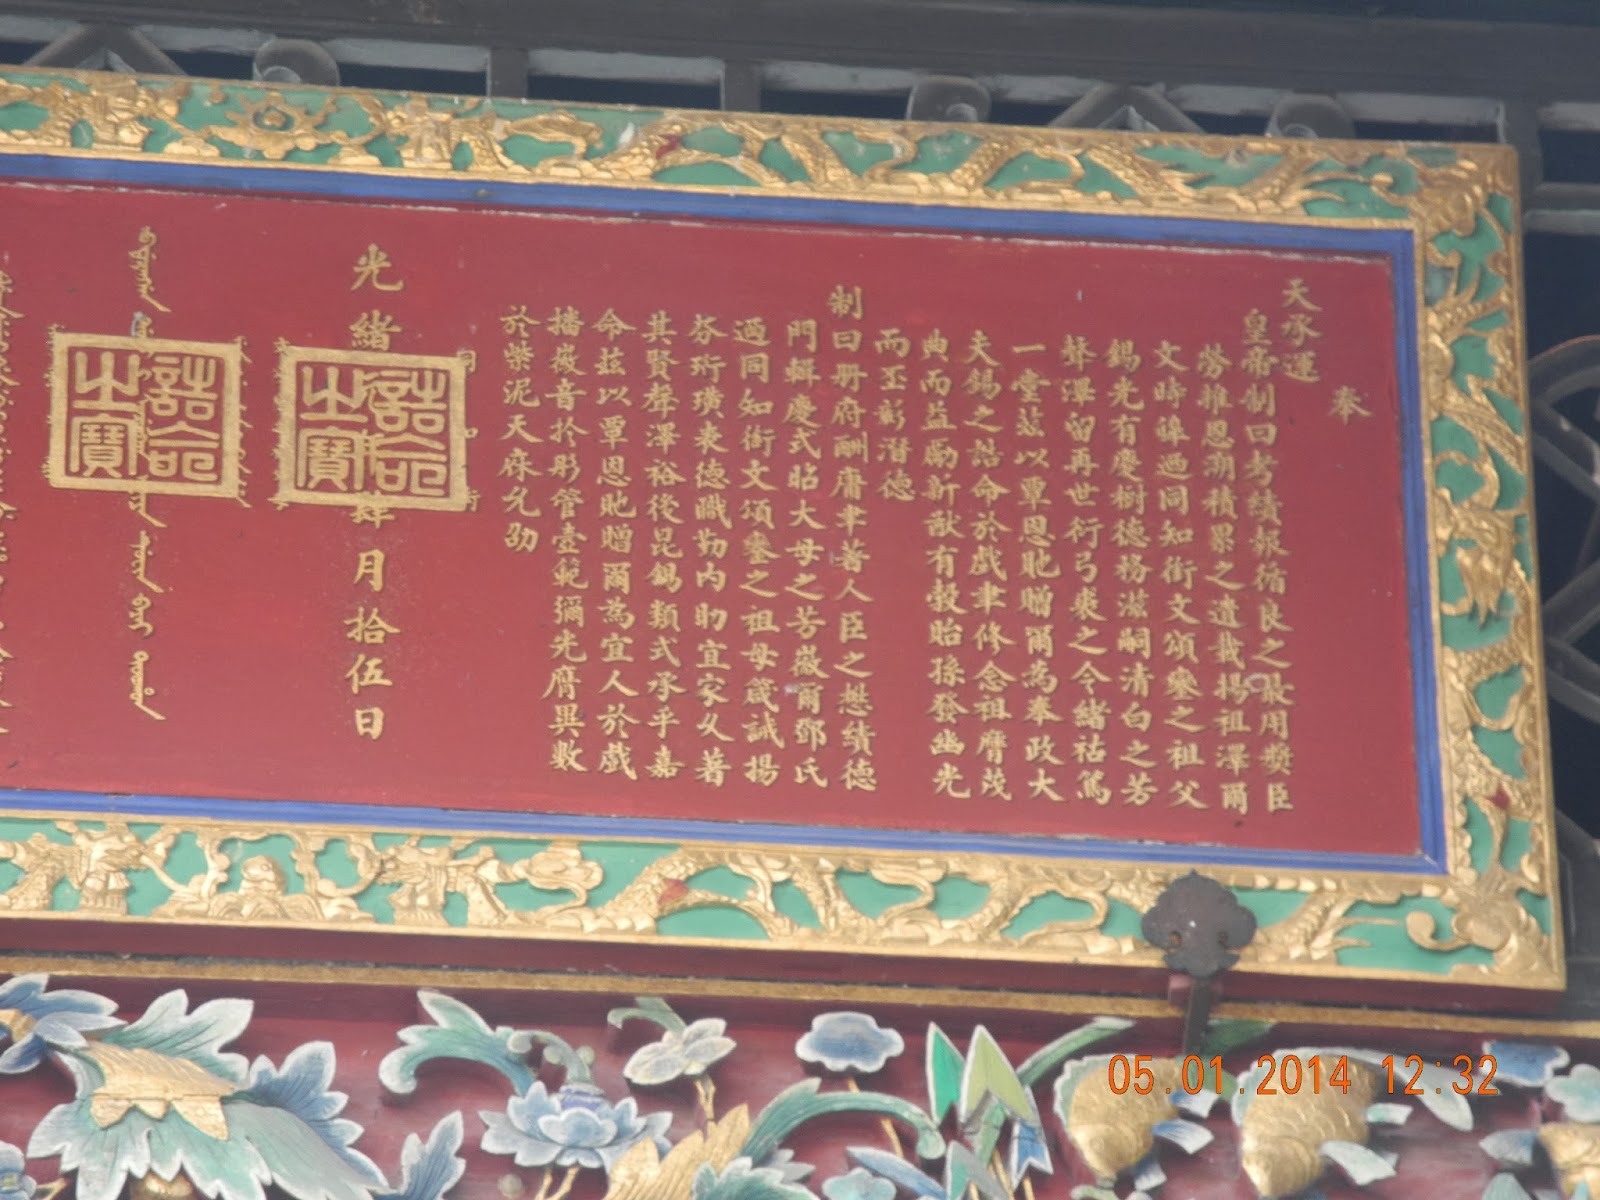 奉
天承運
皇帝制曰考績報循良之最用獎臣
勞推恩溯積累之遺載揚祖澤爾
文時鏱迺同知銜文頌鑾之祖父
錫光有慶樹德務滋嗣清白之芳
聲澤留再世衍弓裘之令緒祜篤
一堂茲以覃恩貤贈爾為奉政大
夫錫之誥命於戲聿修念祖膺茂
典而益勵新猷有穀貽孫發幽光
而丕彰潛德
制曰冊府酬庸聿著人臣之懋績德
門輯慶式昭大母之芳徽爾鄧氏
迺同知銜文頌鑾之祖母箴誡揚
芬珩璜表德職勤內助宜家久著
其賢聲澤裕後昆錫類式承乎嘉
命茲以覃恩貤贈爾為宜人於戲
播徽音於彤管壼範彌光膺異數
於紫泥天庥允劭
光緒
肆月拾伍日
誥命之寶
誥命之寶
05.01.2014 12:32